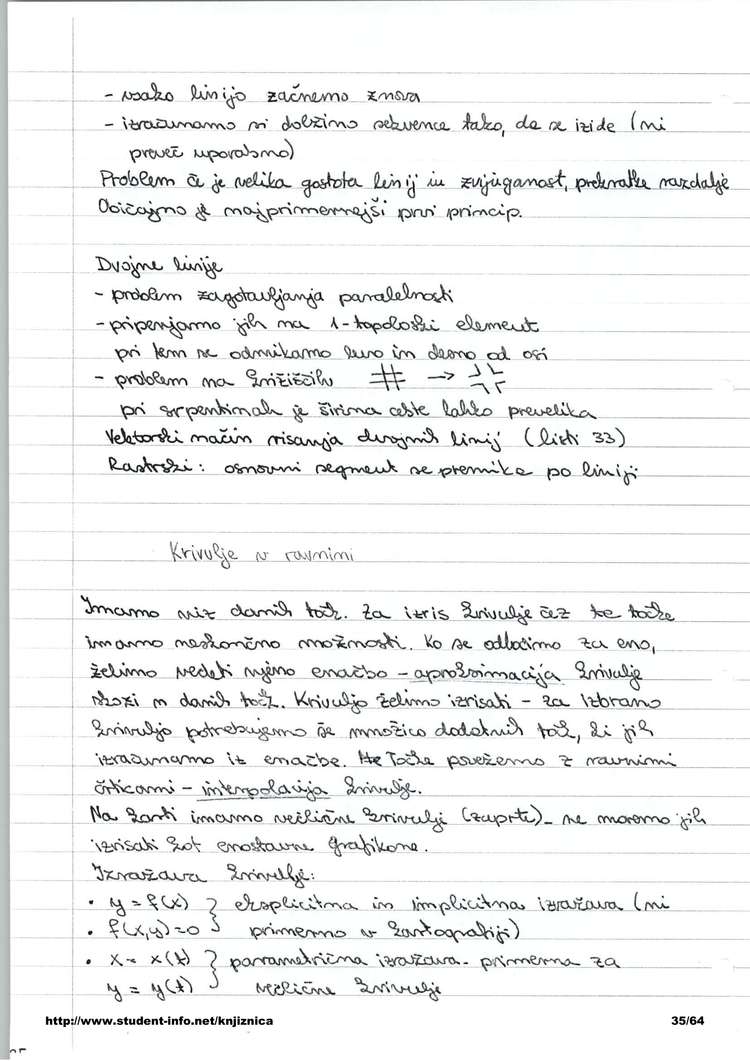 - vsako linijo začnemo znova
- izračunamo si dolžino sekvence tako, da se izide (ni
preveč uporabno)
Problem če je velika gostota linij in zvijuganost, prekratke razdalje
Običajno je najprimernejši prvi princip.
Dvojne linije
- problem zagotavljanja paralelnosti
- pripenjamo jih na 1-topološki element
pri tem se odmikamo levo in desno od osi
- problem na križišćih →
pri serpentinah je širina ceste lahko prevelika
Vektorski način risanja dvojnih linij (listi 33)
Rastrski: osnovni segment se premika po liniji
Krivulje v ravnini
Imamo niz danih točk. Za izris krivulje čez te točke
imamo neskončno možnosti. Ko se odločimo za eno,
želimo vedeti njeno enačbo - aproksimacija krivulje
skozi n danih točk. Krivuljo želimo izrisati - za izbrano
krivuljo potrebujemo še množico dodatnih točk, ki jih
izračunamo iz enačbe. Te točke povežemo z ravnimi
črticami - interpolacija krivulje.
Na karti imamo večlične krivulje (zaprte) - ne moremo jih
izrisati kot enostavne grafikone.
Izražava krivulje:
• y = f(x) } eksplicitna in implicitna izražava (ni
• f(x,y)=0 } primerno v kartografiji)
• x = x(t) } parametrična izražava - primerna za
y = y(t) } večlične krivulje
http://www.student-info.net/knjiznica 35/64